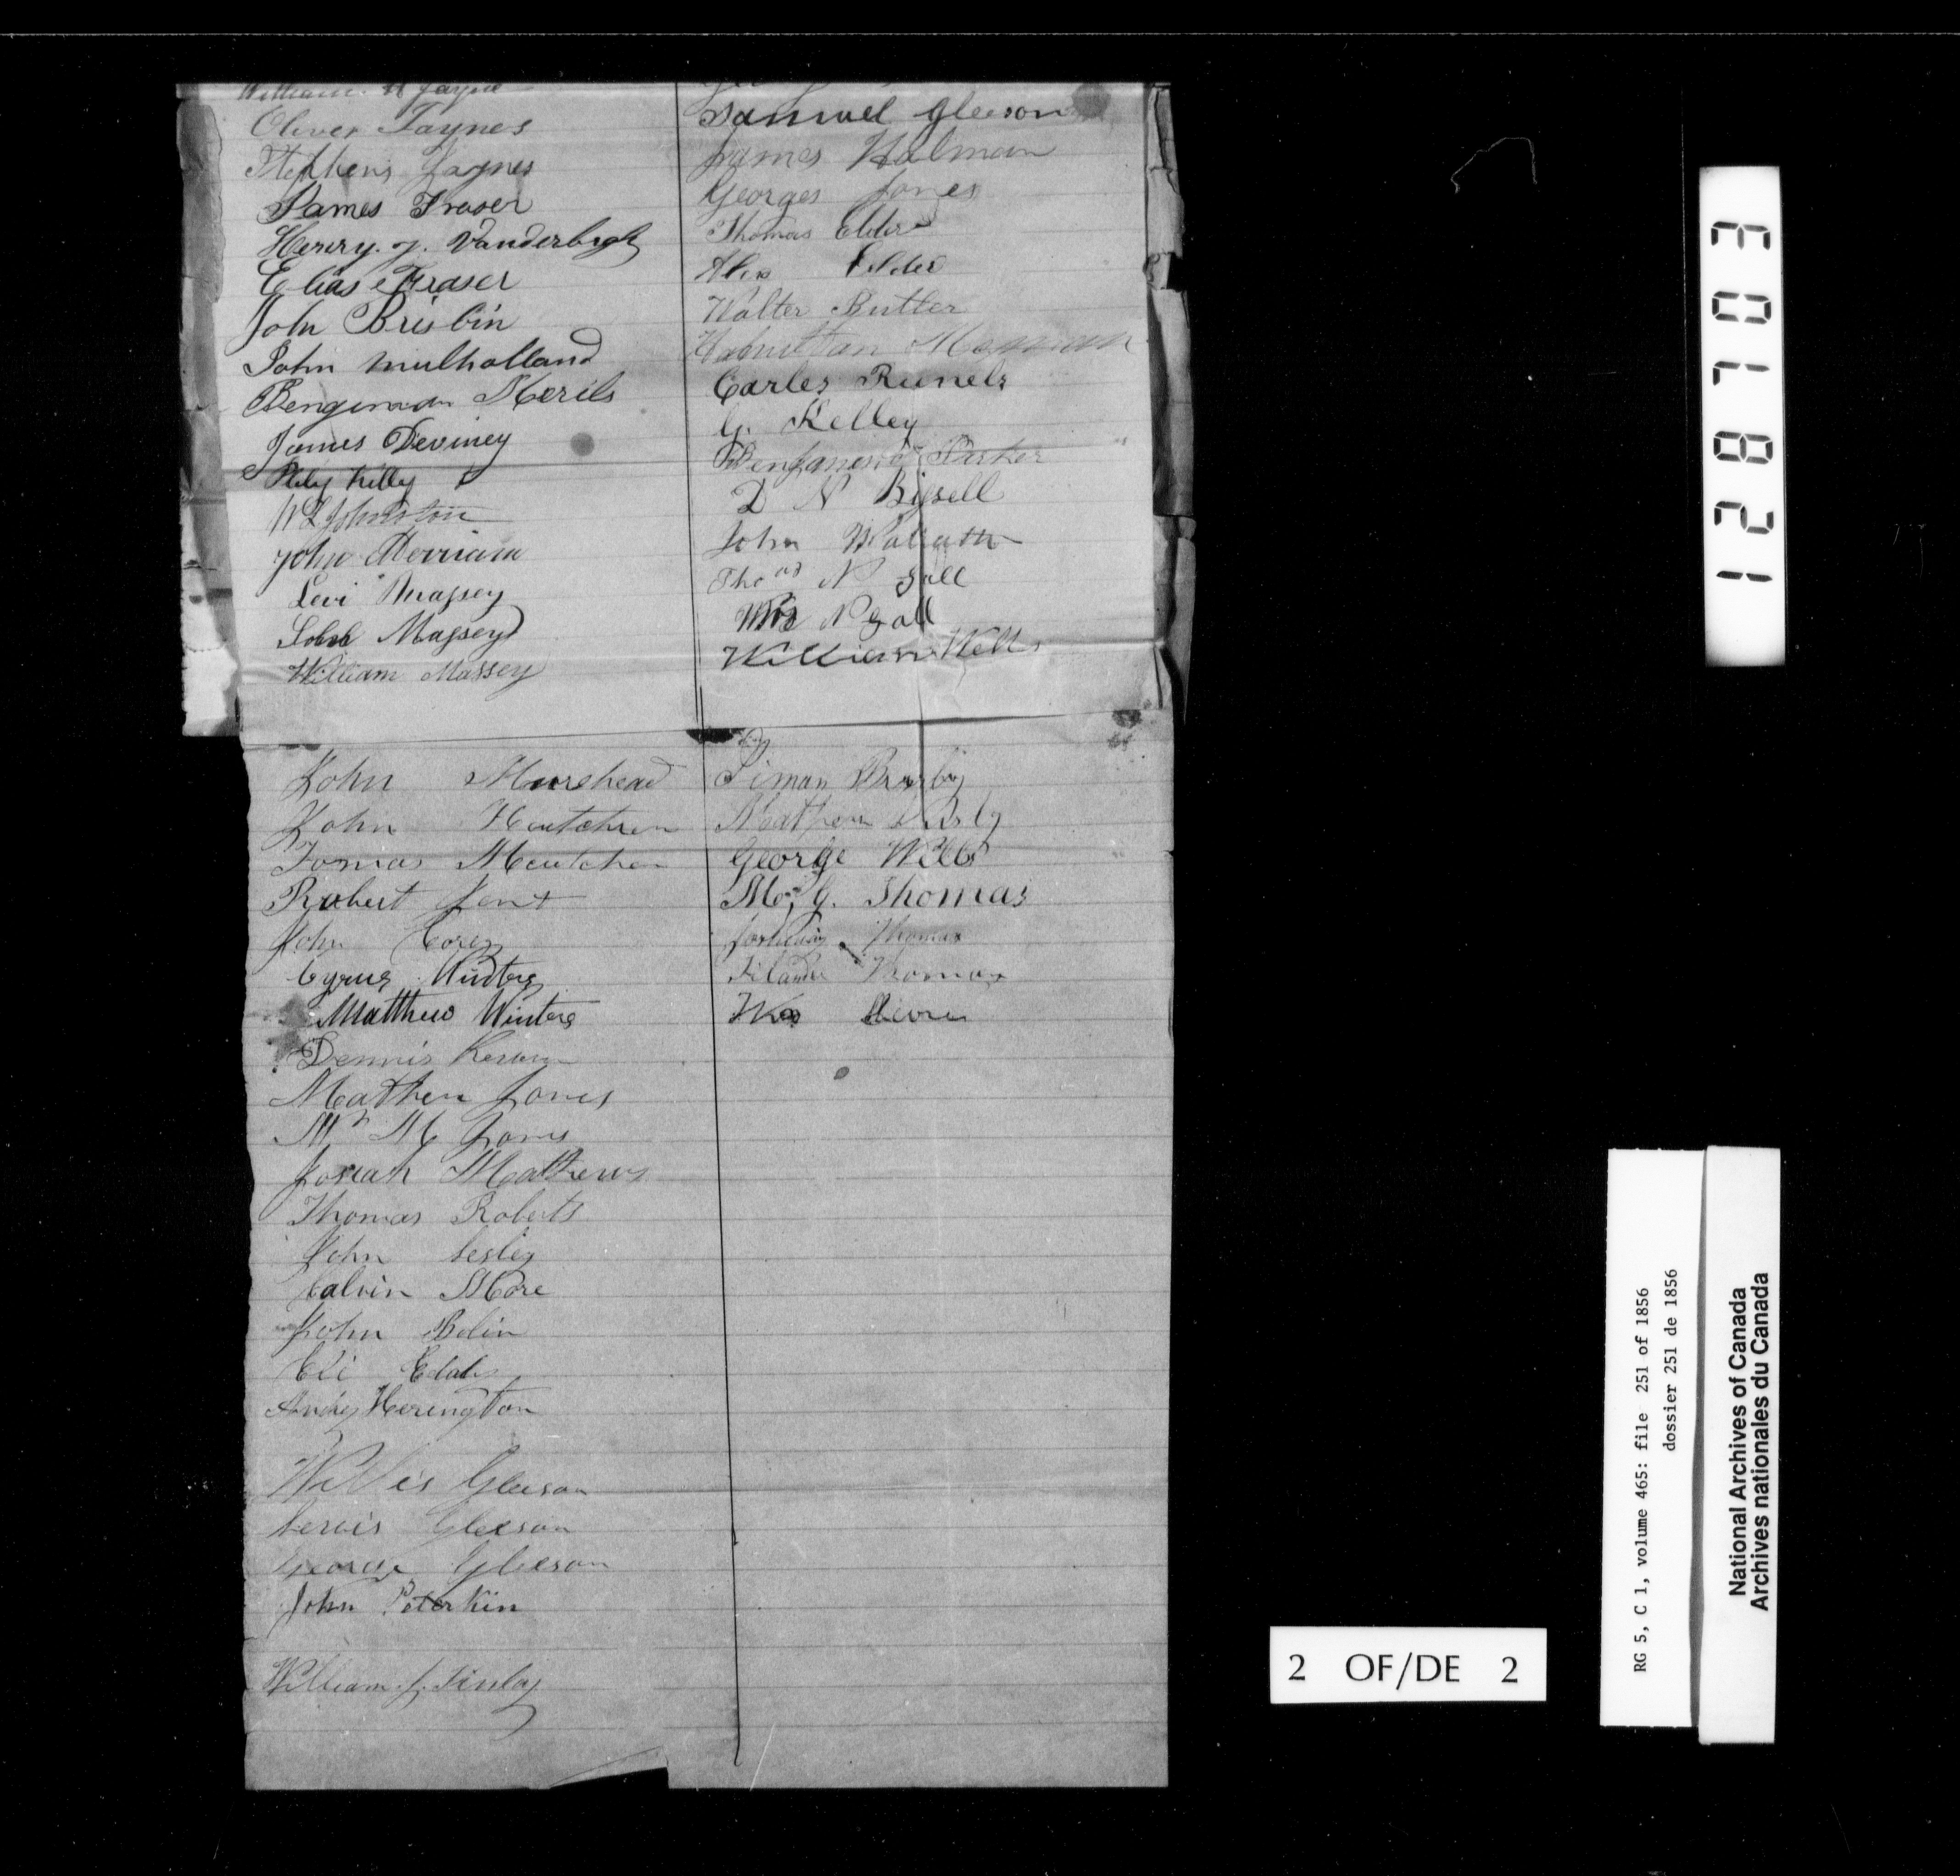 William Jayne
Oliver Jaynes
Stephens Jaynes
James Fraser
Henry. J. Vanderburgh
Elias Fraser
John Brisbin
John mulholland
Bengiman Merils
James Deviney
Kelly
W L Johnston
John Merriam
Levi Massey
John Massey
William Massey
John Murehead
John
Tomas
Robert
John Corey
Cyrus Winters
Matthew Winters
Dennis
Mathew Jones
Wm M Jones
Josiah Mathews
Thomas Roberts
John Lesley
Calvin More
John Bolin
Eli
Herington
Willis Gleeson
Lewis Gleeson
George Gleeson
John Peterkin
William J. Finlay
Samuel Gleeson
James Holman
Georges Jones
Thomas Elder
Alex Elder
Walter Butler
Hamilton
Carles Runels
G. Kelley
Benjamen Parker
D N Bissell
John
Thos N Gall
Wm N Gall
William Wells
Simon
Mathew
George Wells
M. G. Thomas
Thomas
Filander Thomas
Wm
1 2 8 7 0 3
2 OF/DE 2
RG 5, C 1, volume 465: file 251 of 1856
dossier 251 de 1856
National Archives of Canada
Archives nationales du Canada